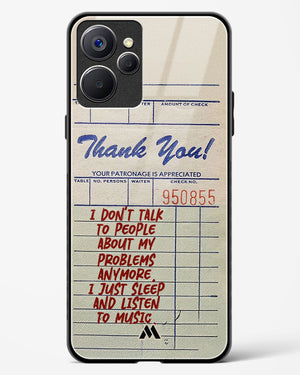 AMOUNT OF CHECK
Thank You!
YOUR PATRONAGE IS APPRECIATED
TABLE NO. PERSONS WAITER CHECK NO.
950855
I DON'T TALK
TO PEOPLE
ABOUT MY
PROBLEMS
ANYMORE.
I JUST SLEEP
AND LISTEN
TO MUSIC